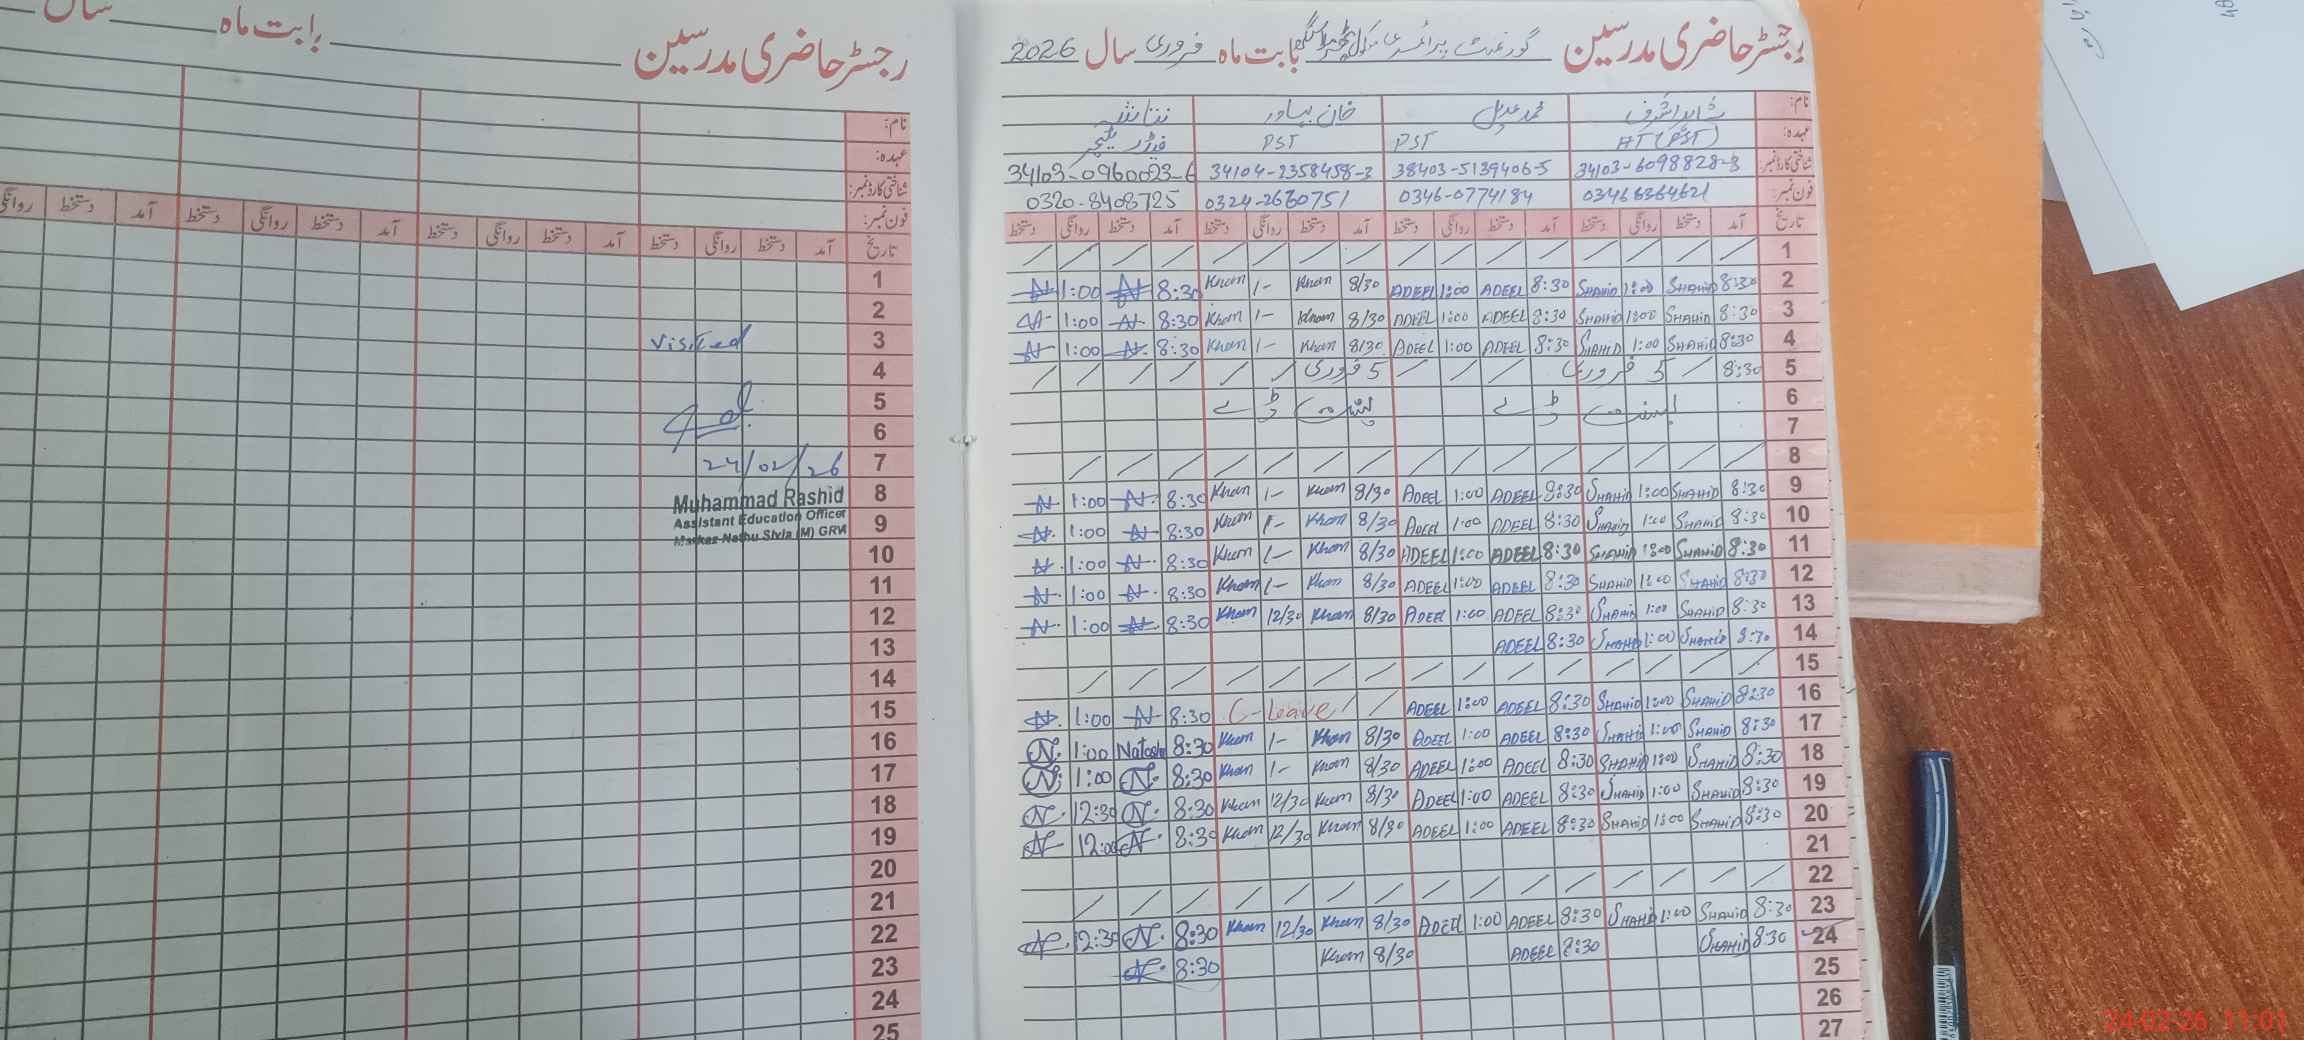 رجسٹر حاضری مدرسین بابت ماہ سال
نام:
عہدہ:
شناختی کارڈ نمبر:
فون نمبر:
تاریخ آمد دستخط روانگی دستخط آمد دستخط روانگی دستخط آمد دستخط روانگی دستخط آمد دستخط روانگی
1
2
3 Visited
4
5
6
7 24/02/26
8 Muhammad Rashid
Assistant Education Officer
9 Markaz Nathu Sivia (M) GRW
10
11
12
13
14
15
16
17
18
19
20
21
22
23
24
25
رجسٹر حاضری مدرسین گورنمنٹ پرائمری سکول بابت ماہ فروری سال 2026
نام: شاہد اشرف محمد عدیل خان بہادر نتاشہ
عہدہ: HT (PST) PST PST ٹیچر
شناختی کارڈ نمبر: 34103-6098828-3 38403-5139406-5 34104-2358458-3 34103-0960023-6
فون نمبر: 03466364621 0346-0774184 0324-2660751 0320-8408725
تاریخ آمد دستخط روانگی دستخط آمد دستخط روانگی دستخط آمد دستخط روانگی دستخط آمد دستخط روانگی دستخط
1 / / / / / / / / / / / / / / / /
2 8:30 SHAHID 1:00 SHAHID 8:30 ADEEL 1:00 ADEEL 8/30 Khan 1- Khan 8:30 N 1:00 N
3 8:30 SHAHID 1:00 SHAHID 8:30 ADEEL 1:00 ADEEL 8/30 Khan 1- Khan 8:30 N 1:00 N
4 8:30 SHAHID 1:00 SHAHID 8:30 ADEEL 1:00 ADEEL 8/30 Khan 1- Khan 8:30 N 1:00 N
5 8:30 / 5 فروری / / / 5 فروری / / / / / /
6 بسنت ڈے بسنت ڈے
7
8 / / / / / / / / / / / / / / /
9 8:30 SHAHID 1:00 SHAHID 8:30 ADEEL 1:00 ADEEL 8/30 Khan 1- Khan 8:30 N 1:00 N
10 8:30 SHAHID 1:00 SHAHID 8:30 ADEEL 1:00 ADEEL 8/30 Khan 1- Khan 8:30 N 1:00 N
11 8:30 SHAHID 1:00 SHAHID 8:30 ADEEL 1:00 ADEEL 8/30 Khan 1- Khan 8:30 N 1:00 N
12 8:30 SHAHID 1:00 SHAHID 8:30 ADEEL 1:00 ADEEL 8/30 Khan 1- Khan 8:30 N 1:00 N
13 8:30 SHAHID 1:00 SHAHID 8:30 ADEEL 1:00 ADEEL 8/30 Khan 12/30 Khan 8:30 N 1:00 N
14 8:30 SHAHID 1:00 SHAHID 8:30 ADEEL
15 / / / / / / / / / / / / / / /
16 8:30 SHAHID 1:00 SHAHID 8:30 ADEEL 1:00 ADEEL / / C-Leave 8:30 N 1:00 N
17 8:30 SHAHID 1:00 SHAHID 8:30 ADEEL 1:00 ADEEL 8/30 Khan 1- Khan 8:30 Natash 1:00 N
18 8:30 SHAHID 1:00 SHAHID 8:30 ADEEL 1:00 ADEEL 8/30 Khan 1- Khan 8:30 N 1:00 N
19 8:30 SHAHID 1:00 SHAHID 8:30 ADEEL 1:00 ADEEL 8/30 Khan 12/30 Khan 8:30 N 12:30 N
20 8:30 SHAHID 1:00 SHAHID 8:30 ADEEL 1:00 ADEEL 8/30 Khan 12/30 Khan 8:30 N 12:00 N
21
22 / / / / / / / / / / / / / / /
23 8:30 SHAHID 1:00 SHAHID 8:30 ADEEL 1:00 ADEEL 8/30 Khan 12/30 Khan 8:30 N 12:30 N
24 8:30 SHAHID 8:30 ADEEL 8/30 Khan 8:30 N
25
26
27
24-02-26 11:01